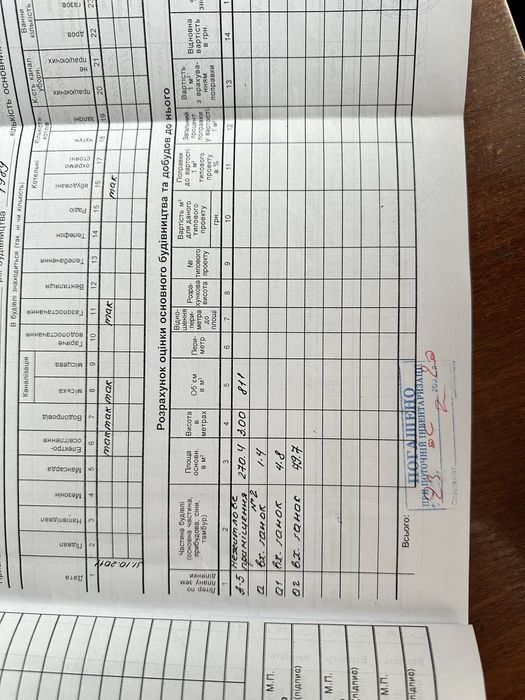 рік будівництва 1989
кількість основних
В будівлі знаходиться (так, ні чи кількість)
Дата
Підвал
Напівпідвал
Мезонін
Мансарда
Електро-освітлення
Водопровід
Каналізація
міська
місцева
Гаряче водопостачання
Газопостачання
Вентиляція
Телебачення
Телефон
Радіо
Котельні
вбудовані
окремо стоячі
Кількість котлів
чугун
сталеві
К-сть канал. уборн.
працюючих
не працюючих
Ванни кількість
дров.
газов.
1 2 3 4 5 6 7 8 9 10 11 12 13 14 15 16 17 18 19 20 21 22 23
31.10.2011 так так так так так
Розрахунок оцінки основного будівництва та добудов до нього
Літер по плану зем ділянки
Частина будівлі (основна частина, прибудова, сіни, тамбур)
Площа основн. в м²
Висота в метрах
Об'єм в м³
Пери-метр
Відно-шення пери-метра до площі
Розра-хункова висота
№ типового проекту
Вартість м³ для даного типового проекту
грн.
Поправки до вартості 1 м³ типового проекту в %
Загальний процент поправки у вартості 1 м³
Вартість 1 м³ з врахува-нням поправки
Відновна вартість в грн.
1 2 3 4 5 6 7 8 9 10 11 12 13 14
нежитлове
приміщення №2 270.4 3.00 811
а вх. ганок 1.4
а1 вх. ганок 4.8
а2 вх. ганок 49.7
Всього:
ПОГАШЕНО
ПРИ ПОТОЧНІЙ ІНВЕНТАРИЗАЦІЇ
М.П.
(підпис)
М.П.
(підпис)
М.П.
(підпис)